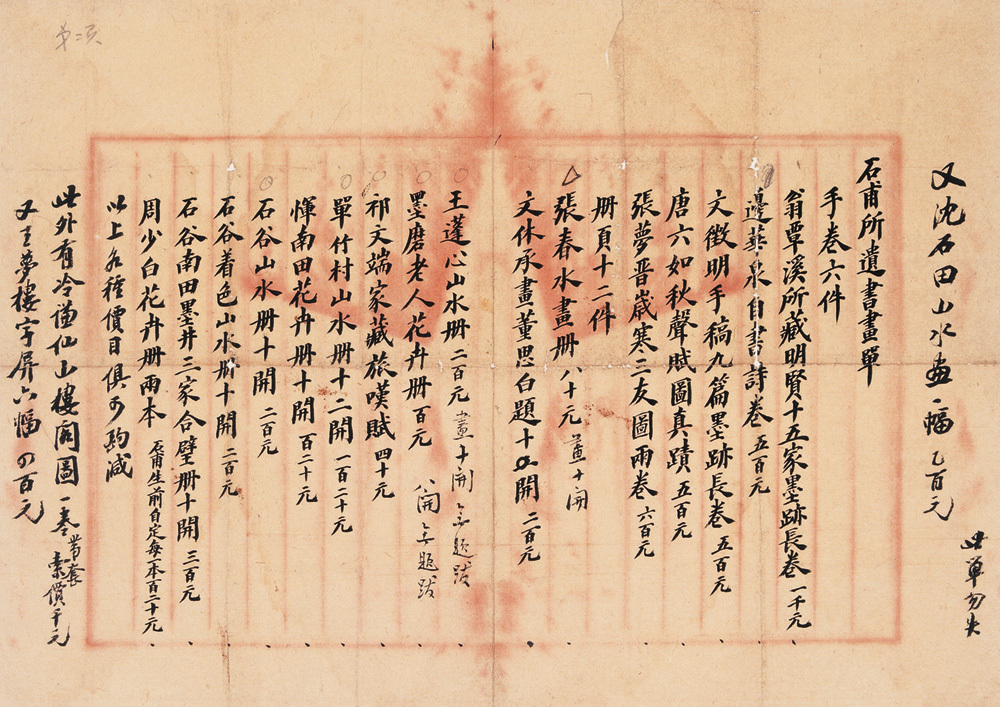 第二頁
又沈石田山水畫一幅 乙百元
此單勿失
石甫所遺書畫單
手卷六件
翁覃溪所藏明賢十五家墨跡長卷 一千元
邊華泉自書詩卷 五百元
文徵明手稿九篇墨跡長卷 五百元
唐六如秋聲賦圖真蹟 五百元
張夢晋歲寒三友圖兩卷 六百元
册頁十二件
張春水畫册 八十元 畫十開
文休承畫董思白題十五開 二百元
王蓬心山水册 二百元 畫十開 無題跋
墨磨老人花卉册 百元 八開 無題跋
祁文端家藏旅嘆賦 四十元
單竹村山水册十二開 一百二十元
惲南田花卉册十開 百二十元
石谷山水册十開 二百元
石谷着色山水册十開 二百元
石谷南田墨井三家合璧册十開 三百元
周少白花卉册兩本 石甫生前自定每本百二十元
以上各種價目俱可酌減
此外有冷謙仙山樓閣圖一卷 帶套 索價千元
又王夢樓字屏六幅 四百元